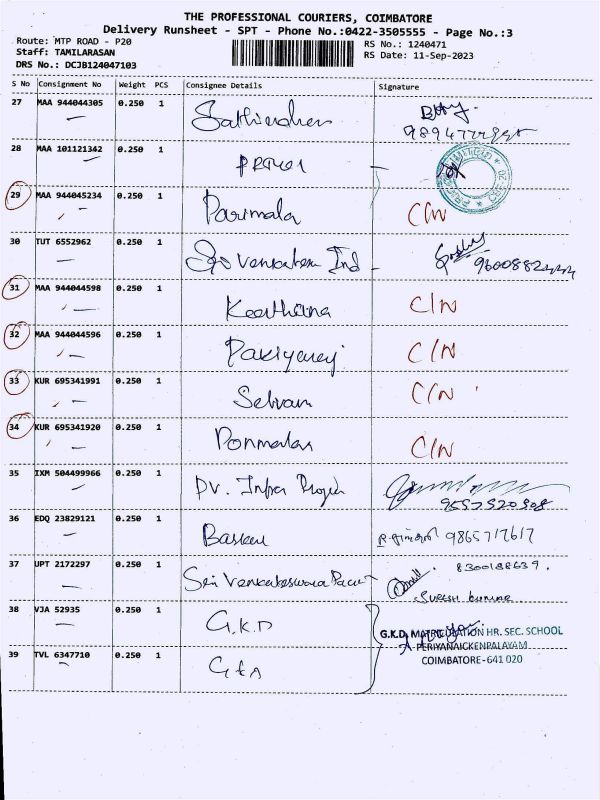 THE PROFESSIONAL COURIERS, COIMBATORE
Delivery Runsheet - SPT - Phone No.:0422-3505555 - Page No.:3
Route: MTP ROAD - P20
RS No.: 1240471
Staff: TAMILARASAN
RS Date: 11-Sep-2023
DRS No.: DCJB124047103
S No Consignment No Weight PCS Consignee Details Signature
27 MAA 944044305 0.250 1
28 MAA 101121342 0.250 1
29 MAA 944045234 0.250 1 Parimala C/N
30 TUT 6552962 0.250 1 Sri Venkatesa Ind
31 MAA 944044598 0.250 1 Keerthana C/N
32 MAA 944044596 0.250 1 Pakiyaraj C/N
33 KUR 695341991 0.250 1 Selvam C/N
34 KUR 695341920 0.250 1 Ponmalar C/N
35 IXM 504499966 0.250 1 PV. Infra
36 EDQ 23829121 0.250 1 9865717617
37 UPT 2172297 0.250 1 Sri Venkateswara 8300188639.
38 VJA 52935 0.250 1 G.K.D
G.K.D. MATRICULATION HR. SEC. SCHOOL
PERIYANAICKENPALAYAM
COIMBATORE-641 020
39 TVL 6347710 0.250 1